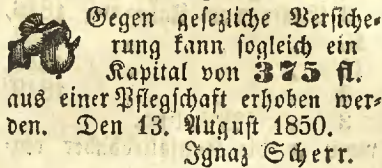 Gegen gesezliche Versiche⸗
rung kann sogleich ein
Kapital von 375 fl.
aus einer Pflegschaft erhoben wer⸗
den. Den 13. August 1850.
Ignaz Scherr.